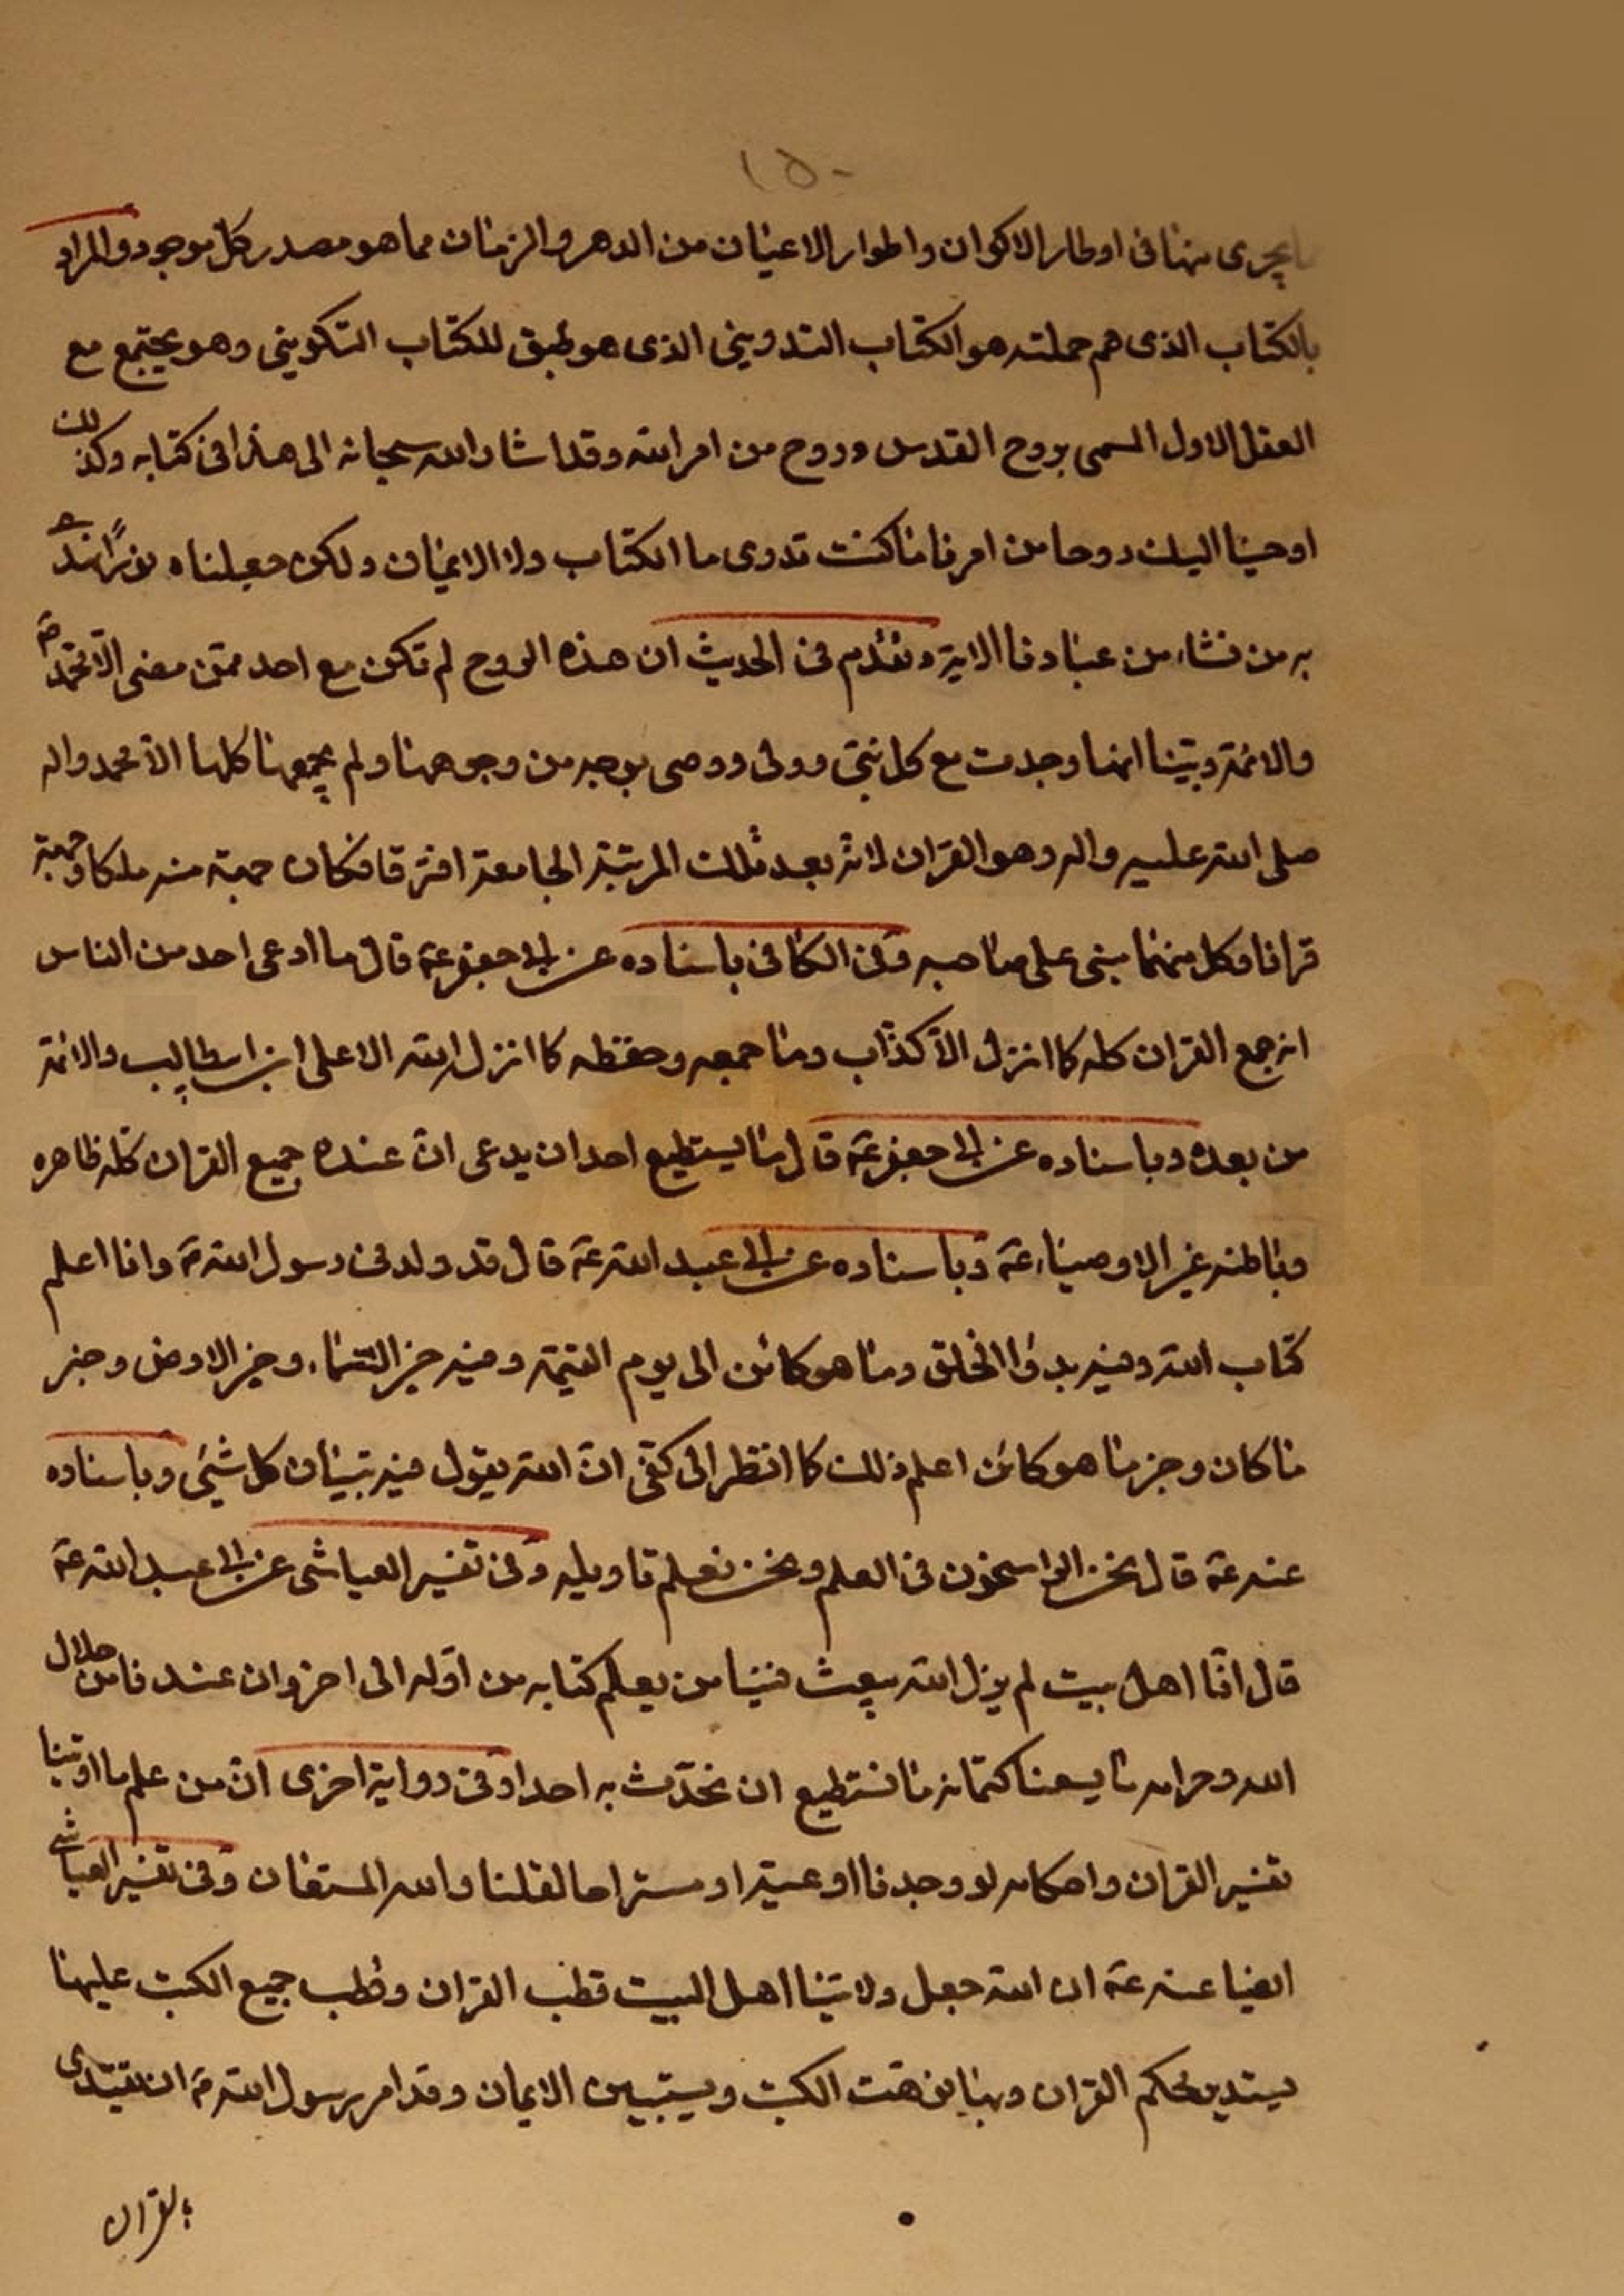 ١٥٠
ما يجرى منها فى اوطار الاكوان واطوار الاعيان من الدهر والزمان مما هو مصدر كل موجود والمراد
بالكتاب الذى هم حملته هو الكتاب التدوينى الذى هو طبق للكتاب التكوينى وهو يجتمع مع
العقل الاول المسمى بروح القدس وروح من امر الله وقد اشار الله سبحانه الى هذا فى كتابه وكذلك
اوحينا اليك روحا من امرنا ما كنت تدرى ما الكتاب ولا الايمان ولكن جعلناه نورًا نهدى
به من نشاء من عبادنا الاية وتقدم فى الحديث ان هذه الروح لم تكن مع احد ممن مضى الّا محمد صم
والائمة وبيّنا انها وجدت مع كل نبىّ وولى ووصى بوجه من وجوهها ولم يجمعها كلها الا محمد واله
صلى الله عليه واله وهو القران لانه بعد تلك المرتبة الجامعة افترقا فكان جهة منه ملكا وجهة
قرانا وكل منهما مبنى على صاحبه وفى الكافى باسناده عن ابى جعفر عم قال ما ادعى احد من الناس
انه جمع القران كله كا انزل الّا كذّاب وما جمعه وحفظه كا انزل الله الا على ابن ابيطالب والائمة
من بعده وباسناده عن ابى جعفر عم قال ما يستطيع احد ان يدعى انّ عنده جميع القران كلّه ظاهره
وباطنه غير الاوصياء عم وباسناده عن ابى عبد الله عم قال قد ولدنى رسول الله ص وانا اعلم
كتاب الله وفيه بدؤا الخلق وما هو كائن الى يوم القيمة وفيه خبر السّماء وخبر الارض وخبر
ما كان وخبر ما هو كائن اعلم ذلك كا انظر الى كفّى انّ الله يقول فيه تبيان كل شيئ وباسناده
عنه عم قال نحن الراسخون فى العلم ونحن نعلم تاويله وفى تفسير العياشى عن ابى عبد الله عم
قال انّا اهل بيت لم يزل الله يبعث فينا من يعلم كتابه من اوّله الى اخره وان عندنا من حلال
الله وحرامه ما يسعنا كتمانه ما نستطيع ان نحدّث به احدا وفى رواية اخرى انّ من علم ما اوتينا
تفسير القران واحكامه لو وجدنا اوعية او مستراحا لقلنا والله المستعان وفى تفسير العياشى
ايضا عنه عم ان الله جعل ولايتنا اهل البيت قطب القران وقطب جميع الكتب عليها
يستدير محكم القران وبها نوهت الكتب ويستبين الايمان وقد امر رسول الله ص ان يقتدى
بالقران